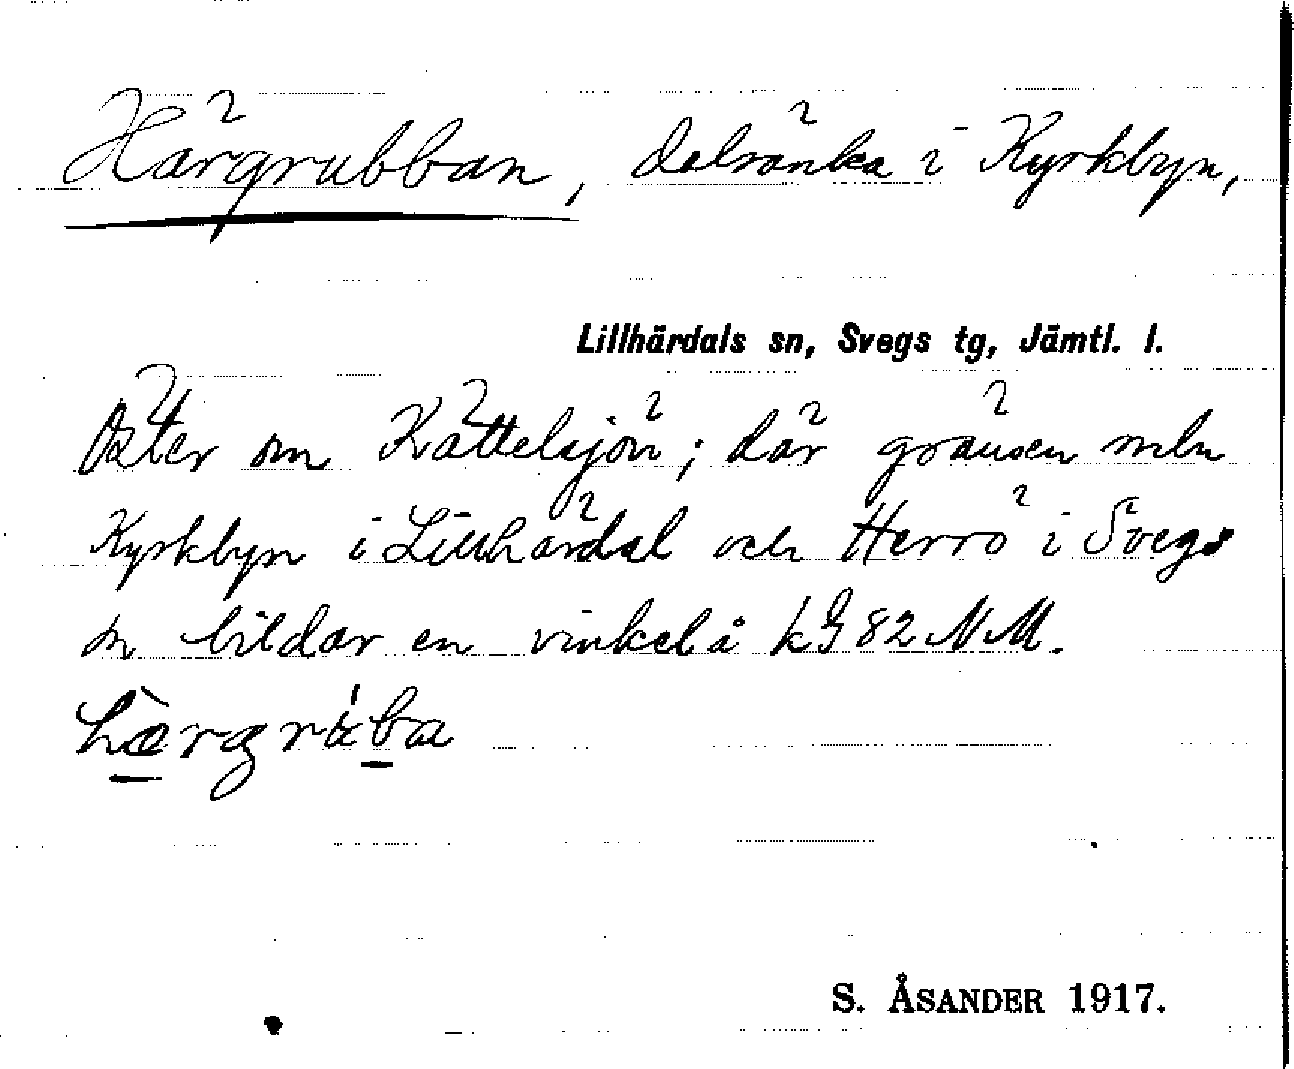 Härgrubban, dalsänka i Kyrkbyn,
Lillhärdals sn, Svegs tg, Jämtl. l.
Öster om Kättelsjön; där gränsen mln
Kyrkbyn i Lillhärdal och Herrö i Svegs
sn bildar en vinkel å kG 82 NM.
S. ÅSANDER 1917.